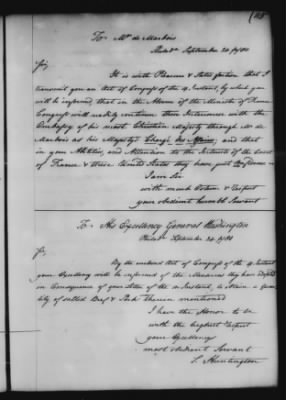 To Mr de Marbois
Philada September 24 1780
Sir,
It is with Pleasure & Satisfaction that I
transmit you an Act of Congress of the 4 Instant, by which you
will be informed, that in the Absence of the Minister of France
Congress will readily continue their Intercourse with the
Embassy of his most Christian Majesty through Mr de
Marbois as his Majestys Chargé des Affaires; and that
in your Abilities, and Attention to the Interests of the Court
of France & these United States they have just Confidence
I am Sir
with much Esteem & Respect
your obedient humble Servant
To His Excellency General Washington
Philada September 24 1780
Sir,
By the enclosed Act of Congress of the Instant
your Excellency will be informed of the Measures they have adopted
in Consequence of your Letter of the Instant, to obtain a Quan-
tity of salted Beef & Pork Therein mentioned
I have the Honor to be
with the highest Respect
your Excellency's
most obedient Servant
S. Huntington